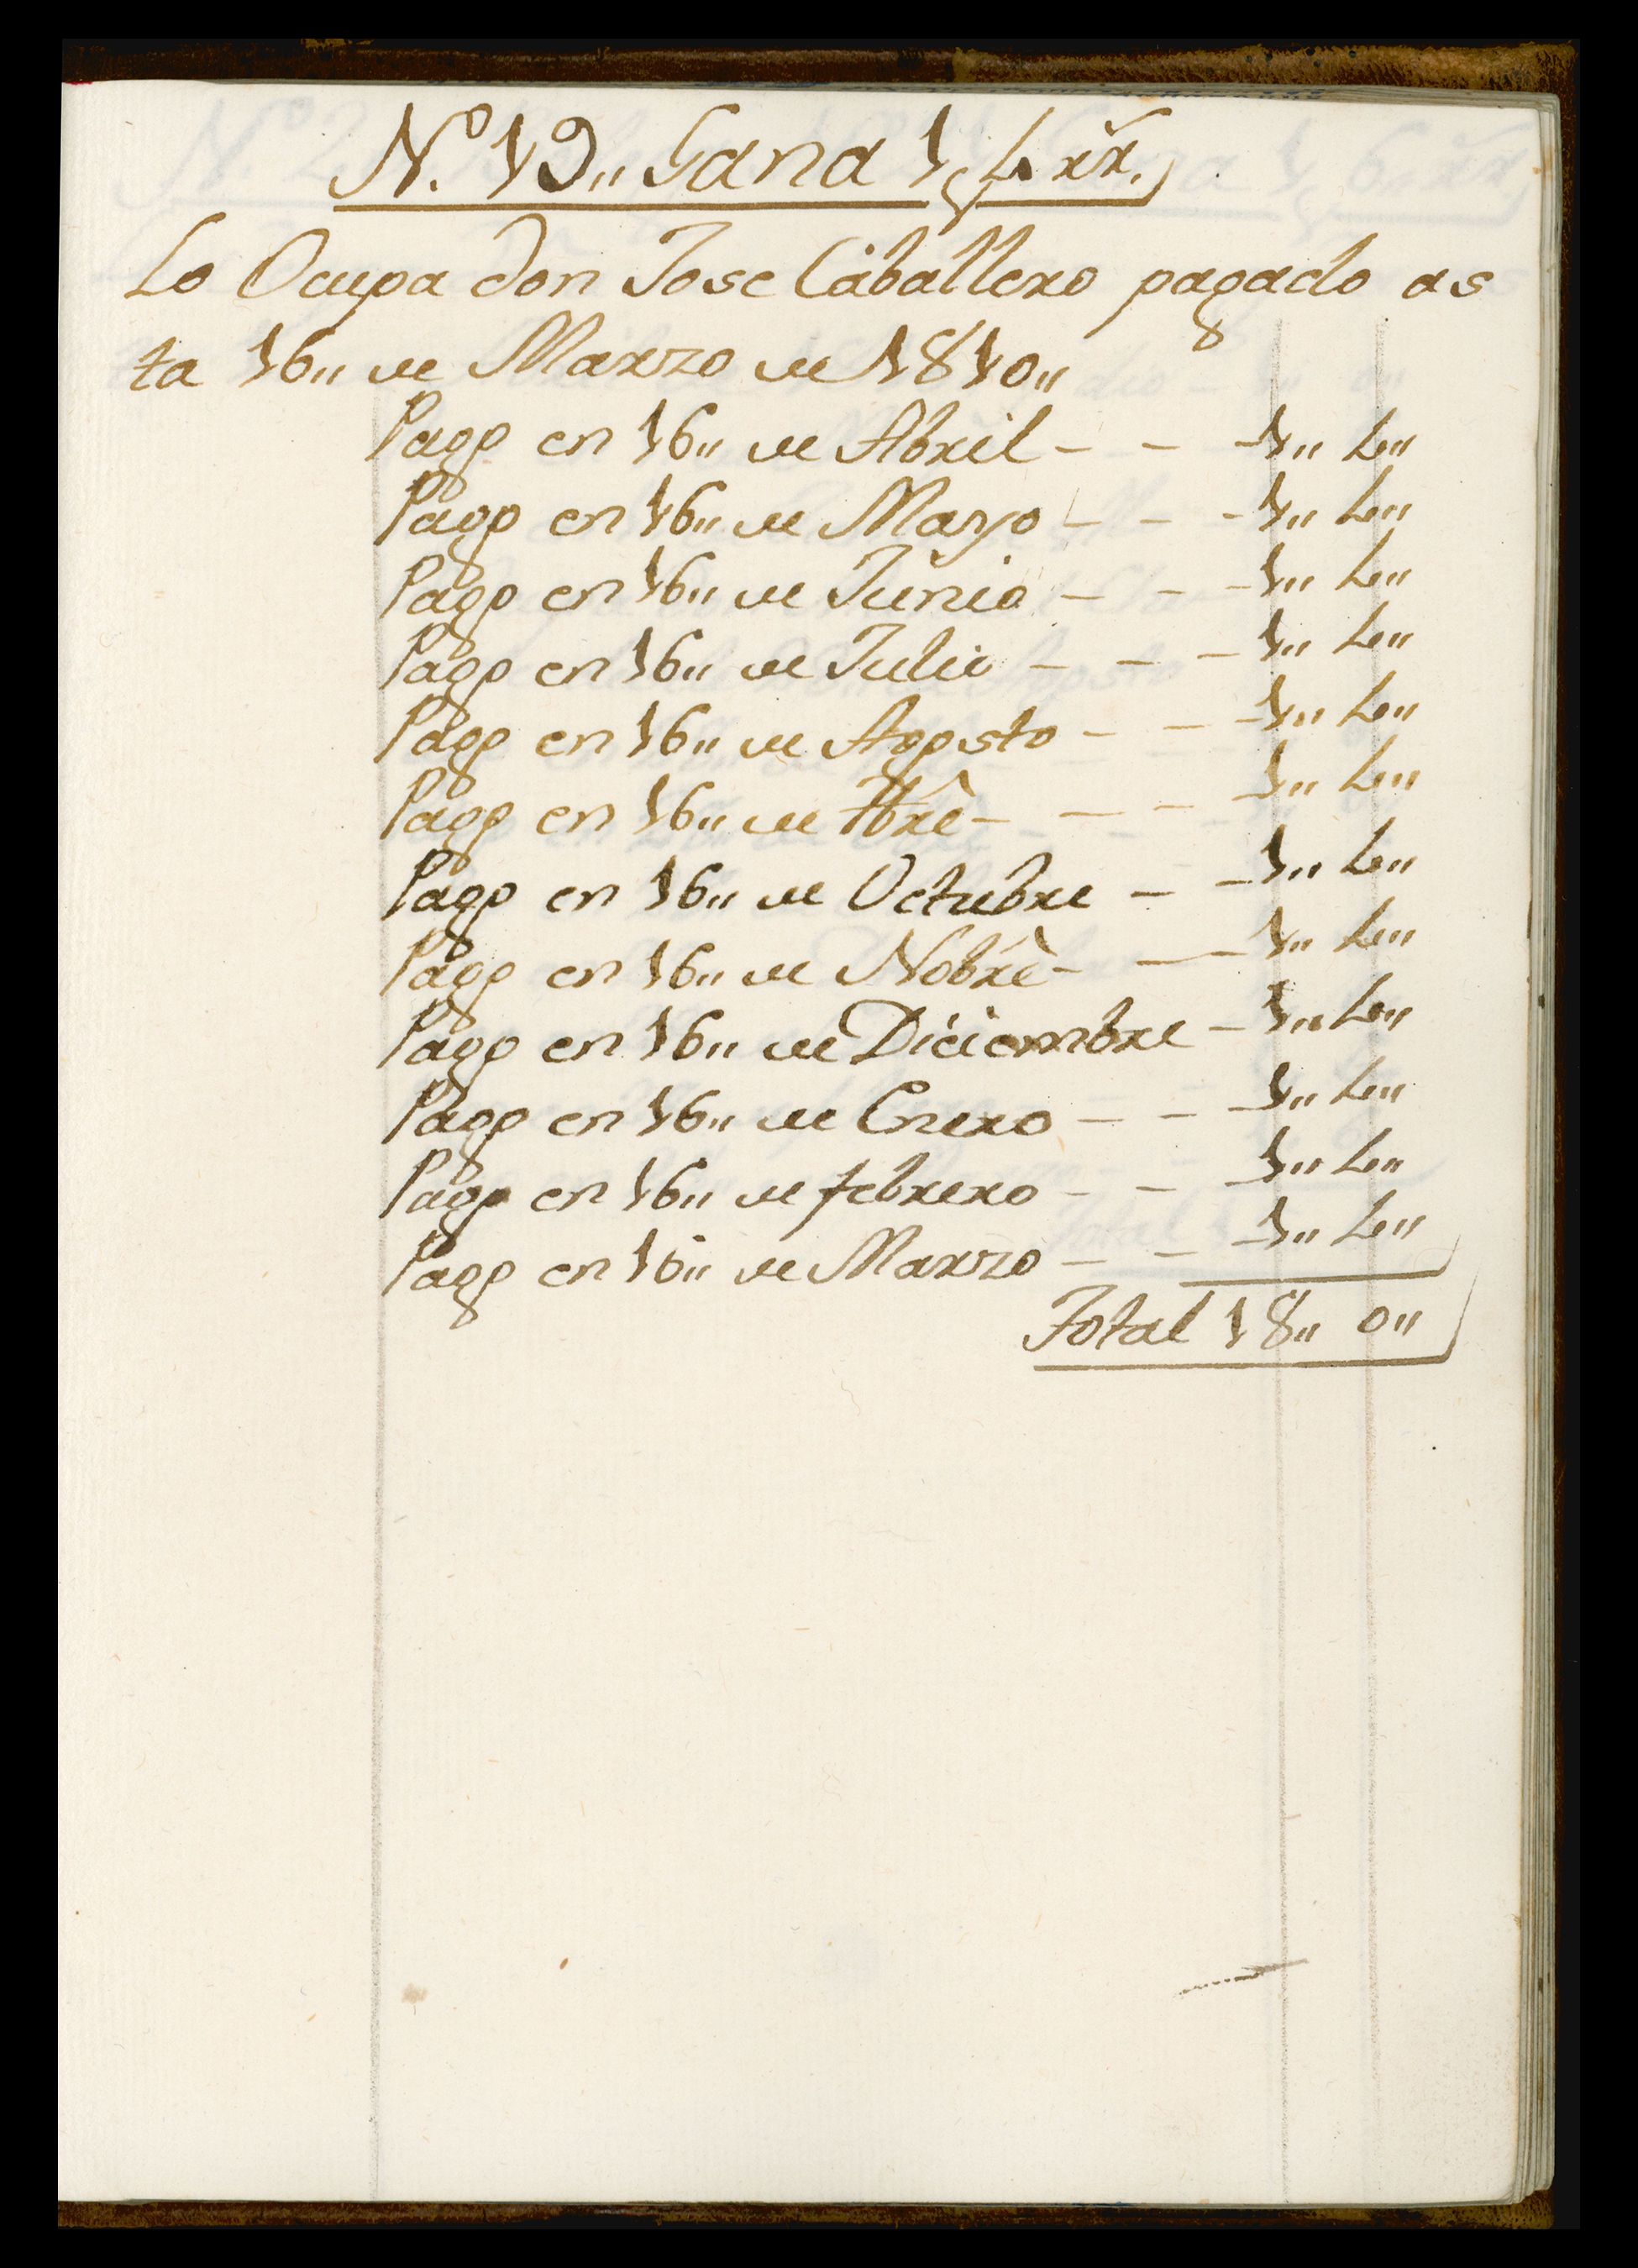 N.º 19,, Gana 1 p 4 rr.
Lo Ocupa don Jose Caballero pagado as
ta 16,, de Marzo de 1810,,
Pago en 16,, de Abril - - - 1,, 4,,
Pago en 16,, de Mayo - - - 1,, 4,,
Pago en 16,, de Junio - - - 1,, 4,,
Pago en 16,, de Julio - - - 1,, 4,,
Pago en 16,, de Agosto - - - 1,, 4,,
Pago en 16,, de 7bre - - - 1,, 4,,
Pago en 16,, de Octubre - - 1,, 4,,
Pago en 16,, de Nobre - - - 1,, 4,,
Pago en 16,, de Diciembre - 1,, 4,,
Pago en 16,, de Enero - - - 1,, 4,,
Pago en 16,, de febrero - - - 1,, 4,,
Pago en 16,, de Marzo - - - 1,, 4,,
Total 18,, 0,,